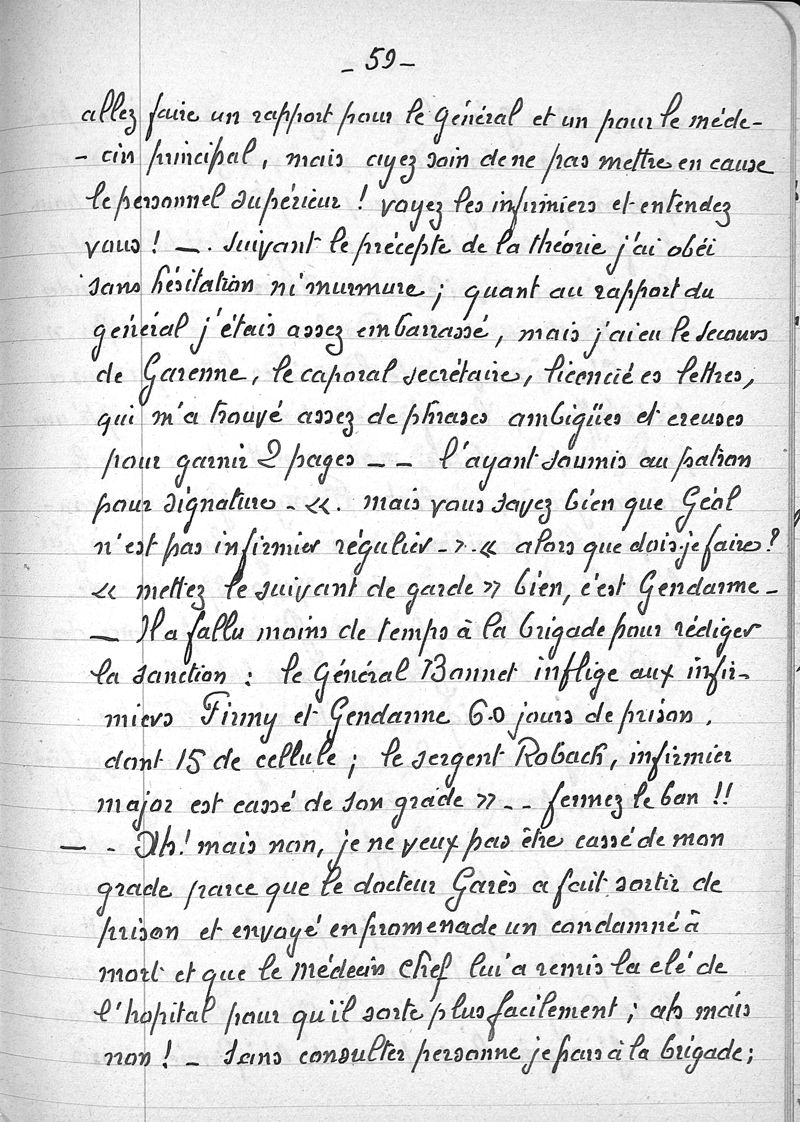 - 59 -
allez faire un rapport pour le général et un pour le méde-
- cin principal, mais ayez soin de ne pas mettre en cause
le personnel supérieur ! voyez les infirmiers et entendez
vous ! — . suivant le précepte de la théorie j'ai obéi
sans hésitation ni murmure ; quant au rapport du
général j'étais assez embarrassé, mais j'ai eu le secours
de Garenne, le caporal secrétaire, licencié es lettres,
qui m'a trouvé assez de phrases ambigües et creuses
pour garnir 2 pages - - l'ayant soumis au patron
pour signature - «. mais vous savez bien que Géol
n'est pas infirmier régulier - ». « alors que dois-je faire ?
« mettez le suivant de garde » bien, c'est Gendarme -
— Il a fallu moins de temps à la brigade pour rédiger
la sanction : le Général Bonnet inflige aux infir-
miers Firmy et Gendarme 60 jours de prison,
dont 15 de cellule ; le sergent Roback, infirmier
major est cassé de son grade » - - fermez le ban !!
— - Ah ! mais non, je ne veux pas être cassé de mon
grade parce que le docteur Garès a fait sortir de
prison et envoyé en promenade un condamné à
mort et que le médecin chef lui a remis la clé de
l'hopital pour qu'il sorte plus facilement ; ah mais
non ! - Sans consulter personne je pars à la brigade ;